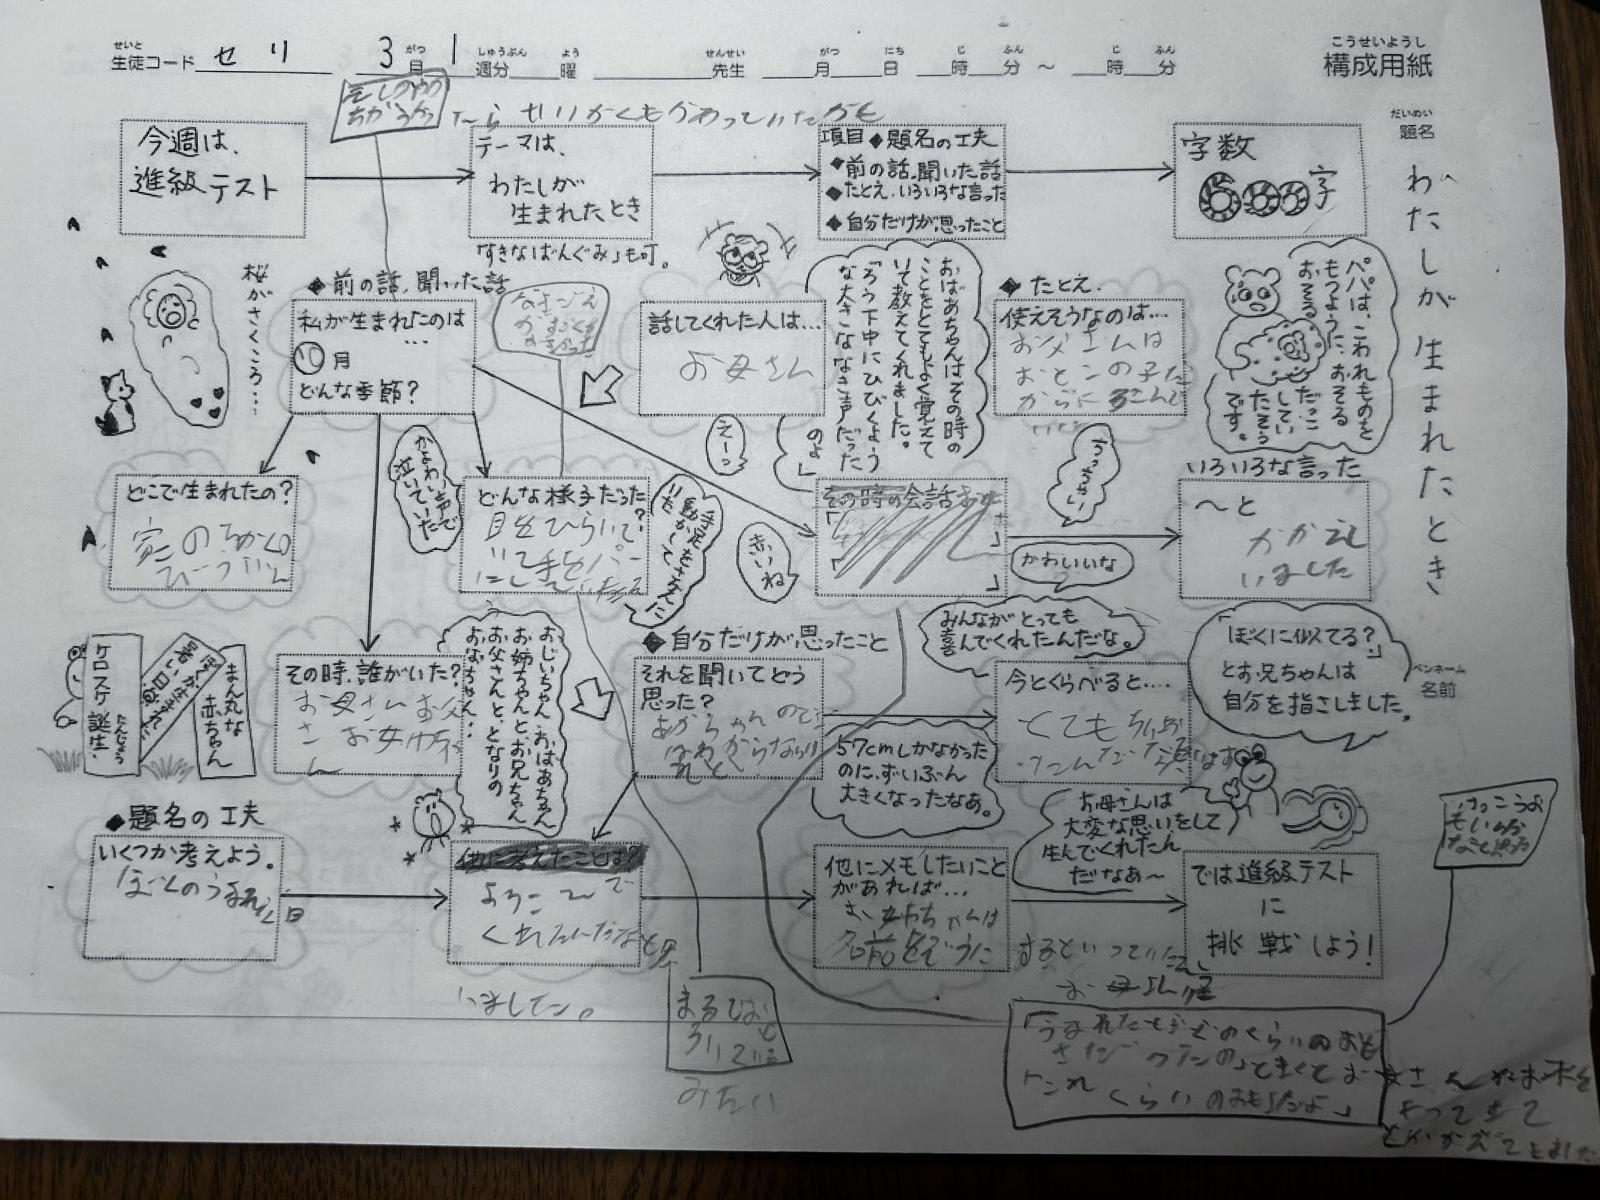 こうせいようし
構成用紙
せいと
生徒コード セリ
3 がつ
月
1 しゅうぶん
週分
よう
曜
せんせい
先生
がつ
月
にち
日
じ
時
ふん
分
～
じ
時
ふん
分
だいめい
題名
わたしが生まれたとき
ペンネーム
名前
たら せいかくもかわっていたかも
今週は、
進級テスト
テーマは、
わたしが
生まれたとき
「すきなばんぐみ」も可。
項目◆題名の工夫
◆前の話.聞いた話
◆たとえ.いろいろな言った
◆自分だけが思ったこと
字数
600字
桜がさくころ…
◆前の話.聞いた話
私が生まれたのは
…
10月
どんな季節?
話してくれた人は…
お母さん
おばあちゃんはその時の
ことをとてもよく覚えて
いて教えてくれました。
「ろう下中にひびくよう
な大きななき声だった
のよ」
◆たとえ.
使えそうなのは…
お父さんは
おとこの子だ
からよろこんで
パパは、こわれものを
もつように、おそる
おそる だっこ
してい
たそう
です。
えーっ
ちっちゃい
どこで生まれたの?
家のちかくの
びょういん
かよわい声で
泣いていた
どんな様子だった?
目をひらいて
いて手をパー
にし
手足をさかんに
動かして
いた
きれいね
その時の会話
かわいいな
いろいろな言った
～と
かかえて
いました
ケロスケ誕生
たんじょう
ぼくが生まれた
暑い日
まん丸な
赤ちゃん
その時、誰がいた?
お母さん お父
さん
おじいちゃん おばあちゃん
お姉ちゃんと、お兄ちゃん
お父さんと、となりの
おばちゃん…
◆自分だけが思ったこと
それを聞いてどう
思った?
あかちゃんので
みんながとっても
喜んでくれたんだな。
今とくらべると…
とてもちいさ
かったんだな
57cmしかなかった
のに、ずいぶん
大きくなったなあ。
「ぼくに似てる?」
とお兄ちゃんは
自分を指さしました。
◆題名の工夫
いくつか考えよう。
ぼくのうまれた日
他に考えたことは?
よろこんで
くれたんだなと思
いました。
他にメモしたいこと
があれば…
お姉ちゃんは
名前をぞうに
するといっていた
お母さんは
大変な思いをして
生んでくれたん
だなあ～
では進級テスト
に
挑戦しよう!
まるでおど
ろいている
みたい
「うまれた時どのくらいのおも
さだったの」ってきくとお母さんがお米を
もってきて
「これくらいのおもさだよ」